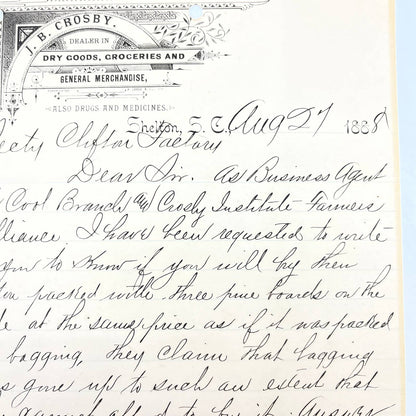 J. B. CROSBY,
DEALER IN
DRY GOODS, GROCERIES AND
GENERAL MERCHANDISE,
ALSO DRUGS AND MEDICINES.
Shelton, S. C., Aug 27 1888
Secty Clifton Factory
Dear Sir. As Business Agent
Cool Branch and Crosby Institute Farmers
lliance. I have been requested to write
you to know if you will by their
ton packed with three pine boards on the
e at the same price as if it was packed
bagging, they claim that bagging
s gone up to such an extent that
cannot afford to buy it. Answer